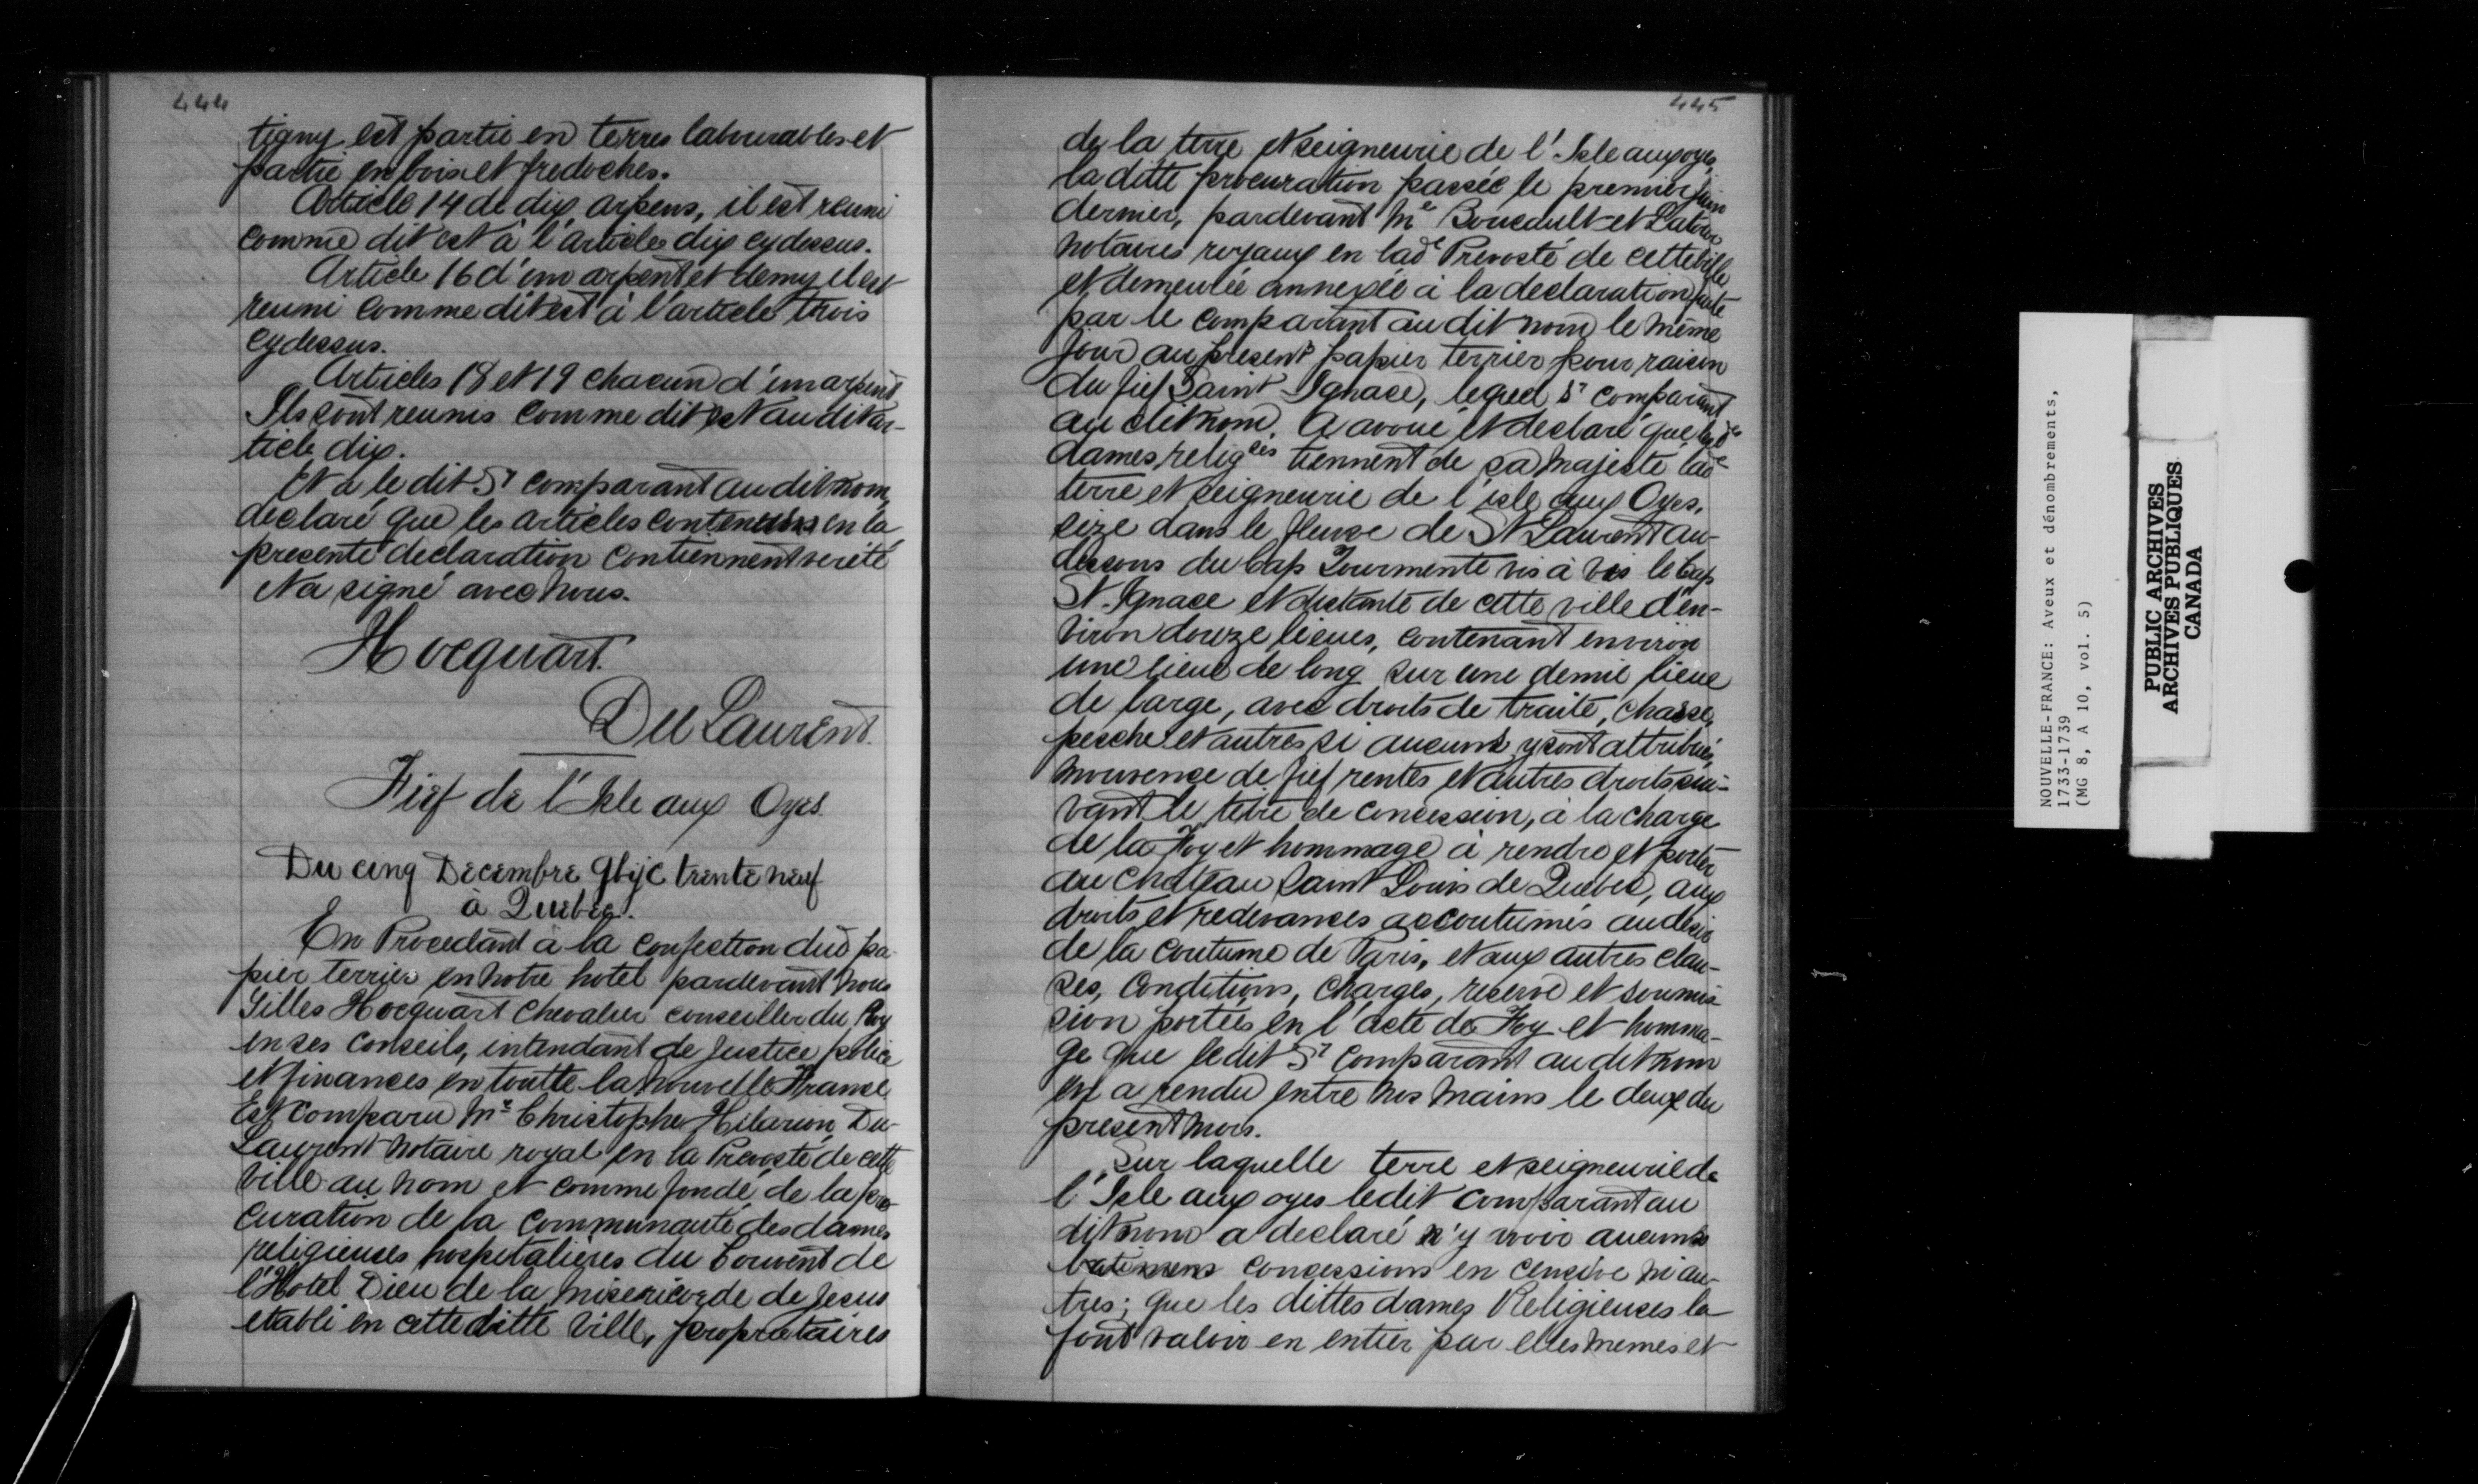 444
tigny est partie en terres labourables et
partie en bois et fredoches.
Article 14 de dix arpens, il est reuni
comme dit est à l'article dix cydessus.
Article 16 d'un arpent et demy il est
reuni comme dit est à l'article trois
cydessus.
Articles 18 et 19 chacun d'un arpent
Ils sont reunis comme dit est au dit ar-
ticle dix.
Et a le dit Sr comparant au dit nom,
declaré que les articles contenus en la
presente declaration contiennent verité
et a signé avec nous.
Hocquart.
Du Laurent.
Fief de l'Isle aux Oyes.
Du cinq Decembre gbijc trente neuf
à Quebec.
En Procedant à la confection dud pa-
pier terrier en notre hotel pardevant nous
Gilles Hocquart Chevalier conseiller du Roy
en ses conseils, intendant de Justice police
et finances en toutte la nouvelle France
Est comparu Me Christophe Hilarion Du-
Laurent notaire royal en la Prevosté de cette
ville au nom et comme fondé de la pro-
curation de la communauté des dames
religieuses hospitalieres du Couvent de
l'Hotel Dieu de la Misericorde de Jesus
etabli en cette ditte ville, propriétaires
445
de la terre et seigneurie de l'Isle aux oyes,
la ditte procuration passée le premier juin
dernier, pardevant Me Boucault et Latour
notaires royaux en lade Prevosté de cette ville
et demeurée annexée à la declaration faite
par le comparant au dit nom le même
jour au present papier terrier pour raison
du fief Saint-Ignace, lequel Sr comparant
au dit nom. A avoué et declaré que lesde
dames religses tiennent de sa majesté lade
terre et seigneurie de l'isle aux Oyes.
size dans le fleuve de St Laurent au-
dessous du Cap Tourmente vis à vis le Cap
St. Ignace et distante de cette ville d'en-
viron douze lieues, contenant environ
une lieue de long sur une demie lieue
de large, avec droits de traite, chasse,
pesche et autres si aucuns y sont attribués,
mouvence de fief rentes et autres droits sui-
vant le titre de concession, à la charge
de la Foy et hommage à rendre et porter
au chateau Saint Louis de Quebec, aux
droits et redevances accoutumés au desir
de la coutume de Paris, et aux autres clau-
ses, conditions, charges, reserve et soumis-
sion portées en l'acte de Foy et homma-
ge que ledit Sr comparant au dit nom
en a rendu entre nos mains le deux du
present mois.
Sur laquelle terre et seigneurie de
l'Isle aux oyes ledit comparant au
dit nom a declaré n'y avoir aucuns
batimens concessions en censive ni au-
tres; que les dittes dames Religieuses la
font valoir en entier par elles memes et
NOUVELLE-FRANCE: Aveux et dénombrements,
1733-1739
(MG 8, A 10, vol. 5)
PUBLIC ARCHIVES
ARCHIVES PUBLIQUES
CANADA